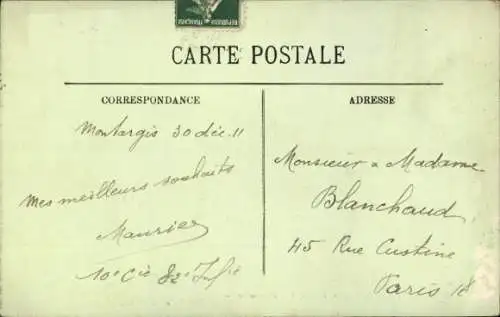 CARTE POSTALE
CORRESPONDANCE
ADRESSE
Montargis 30 déc. 11
Mes meilleurs souhaits
Maurice
10e Cie 82e Inf ie
Monsieur & Madame
Blanchaud
45 Rue Custine
Paris 18